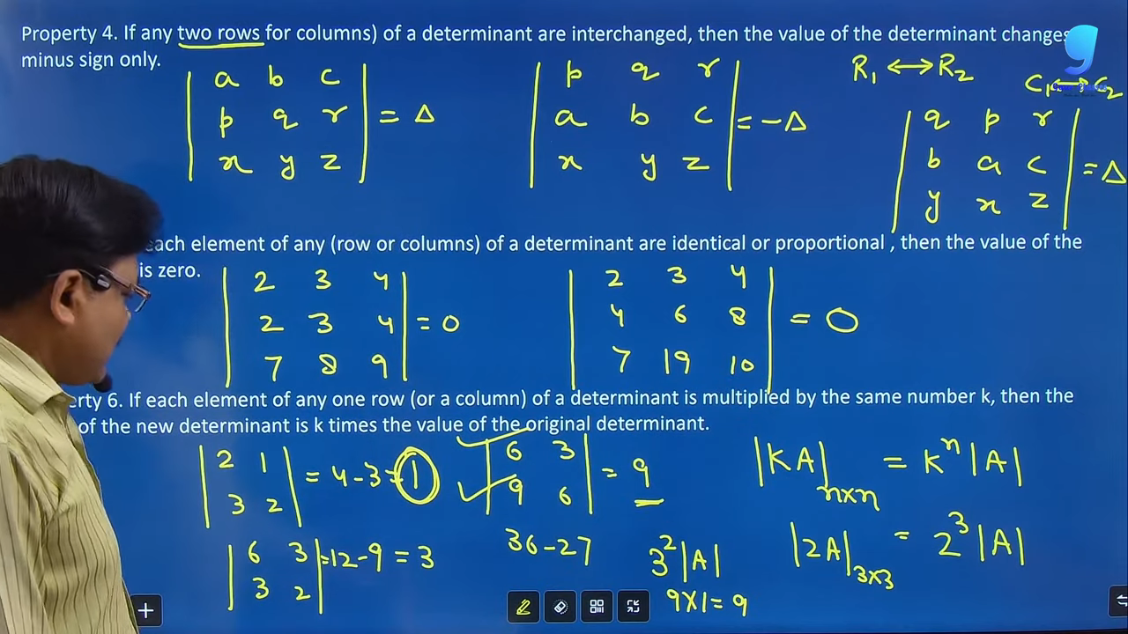 Property 4. If any two rows for columns) of a determinant are interchanged, then the value of the determinant changes
minus sign only.
R₁ ↔ R₂
C₁ ↔ C₂
| a b c |
| p q r | = Δ
| x y z |
| p q r |
| a b c | = -Δ
| x y z |
| q p r |
| b a c | = Δ
| y x z |
each element of any (row or columns) of a determinant are identical or proportional , then the value of the
is zero.
| 2 3 4 |
| 2 3 4 | = 0
| 7 8 9 |
| 2 3 4 |
| 4 6 8 | = 0
| 7 19 10 |
erty 6. If each element of any one row (or a column) of a determinant is multiplied by the same number k, then the
of the new determinant is k times the value of the original determinant.
| 2 1 |
| 3 2 | = 4-3 = 1
| 6 3 |
| 9 6 | = 9
|KA| n×n = Kⁿ|A|
| 6 3 |
| 3 2 | = 12-9 = 3
36-27
3²|A|
9×1 = 9
|2A| 3×3 = 2³|A|